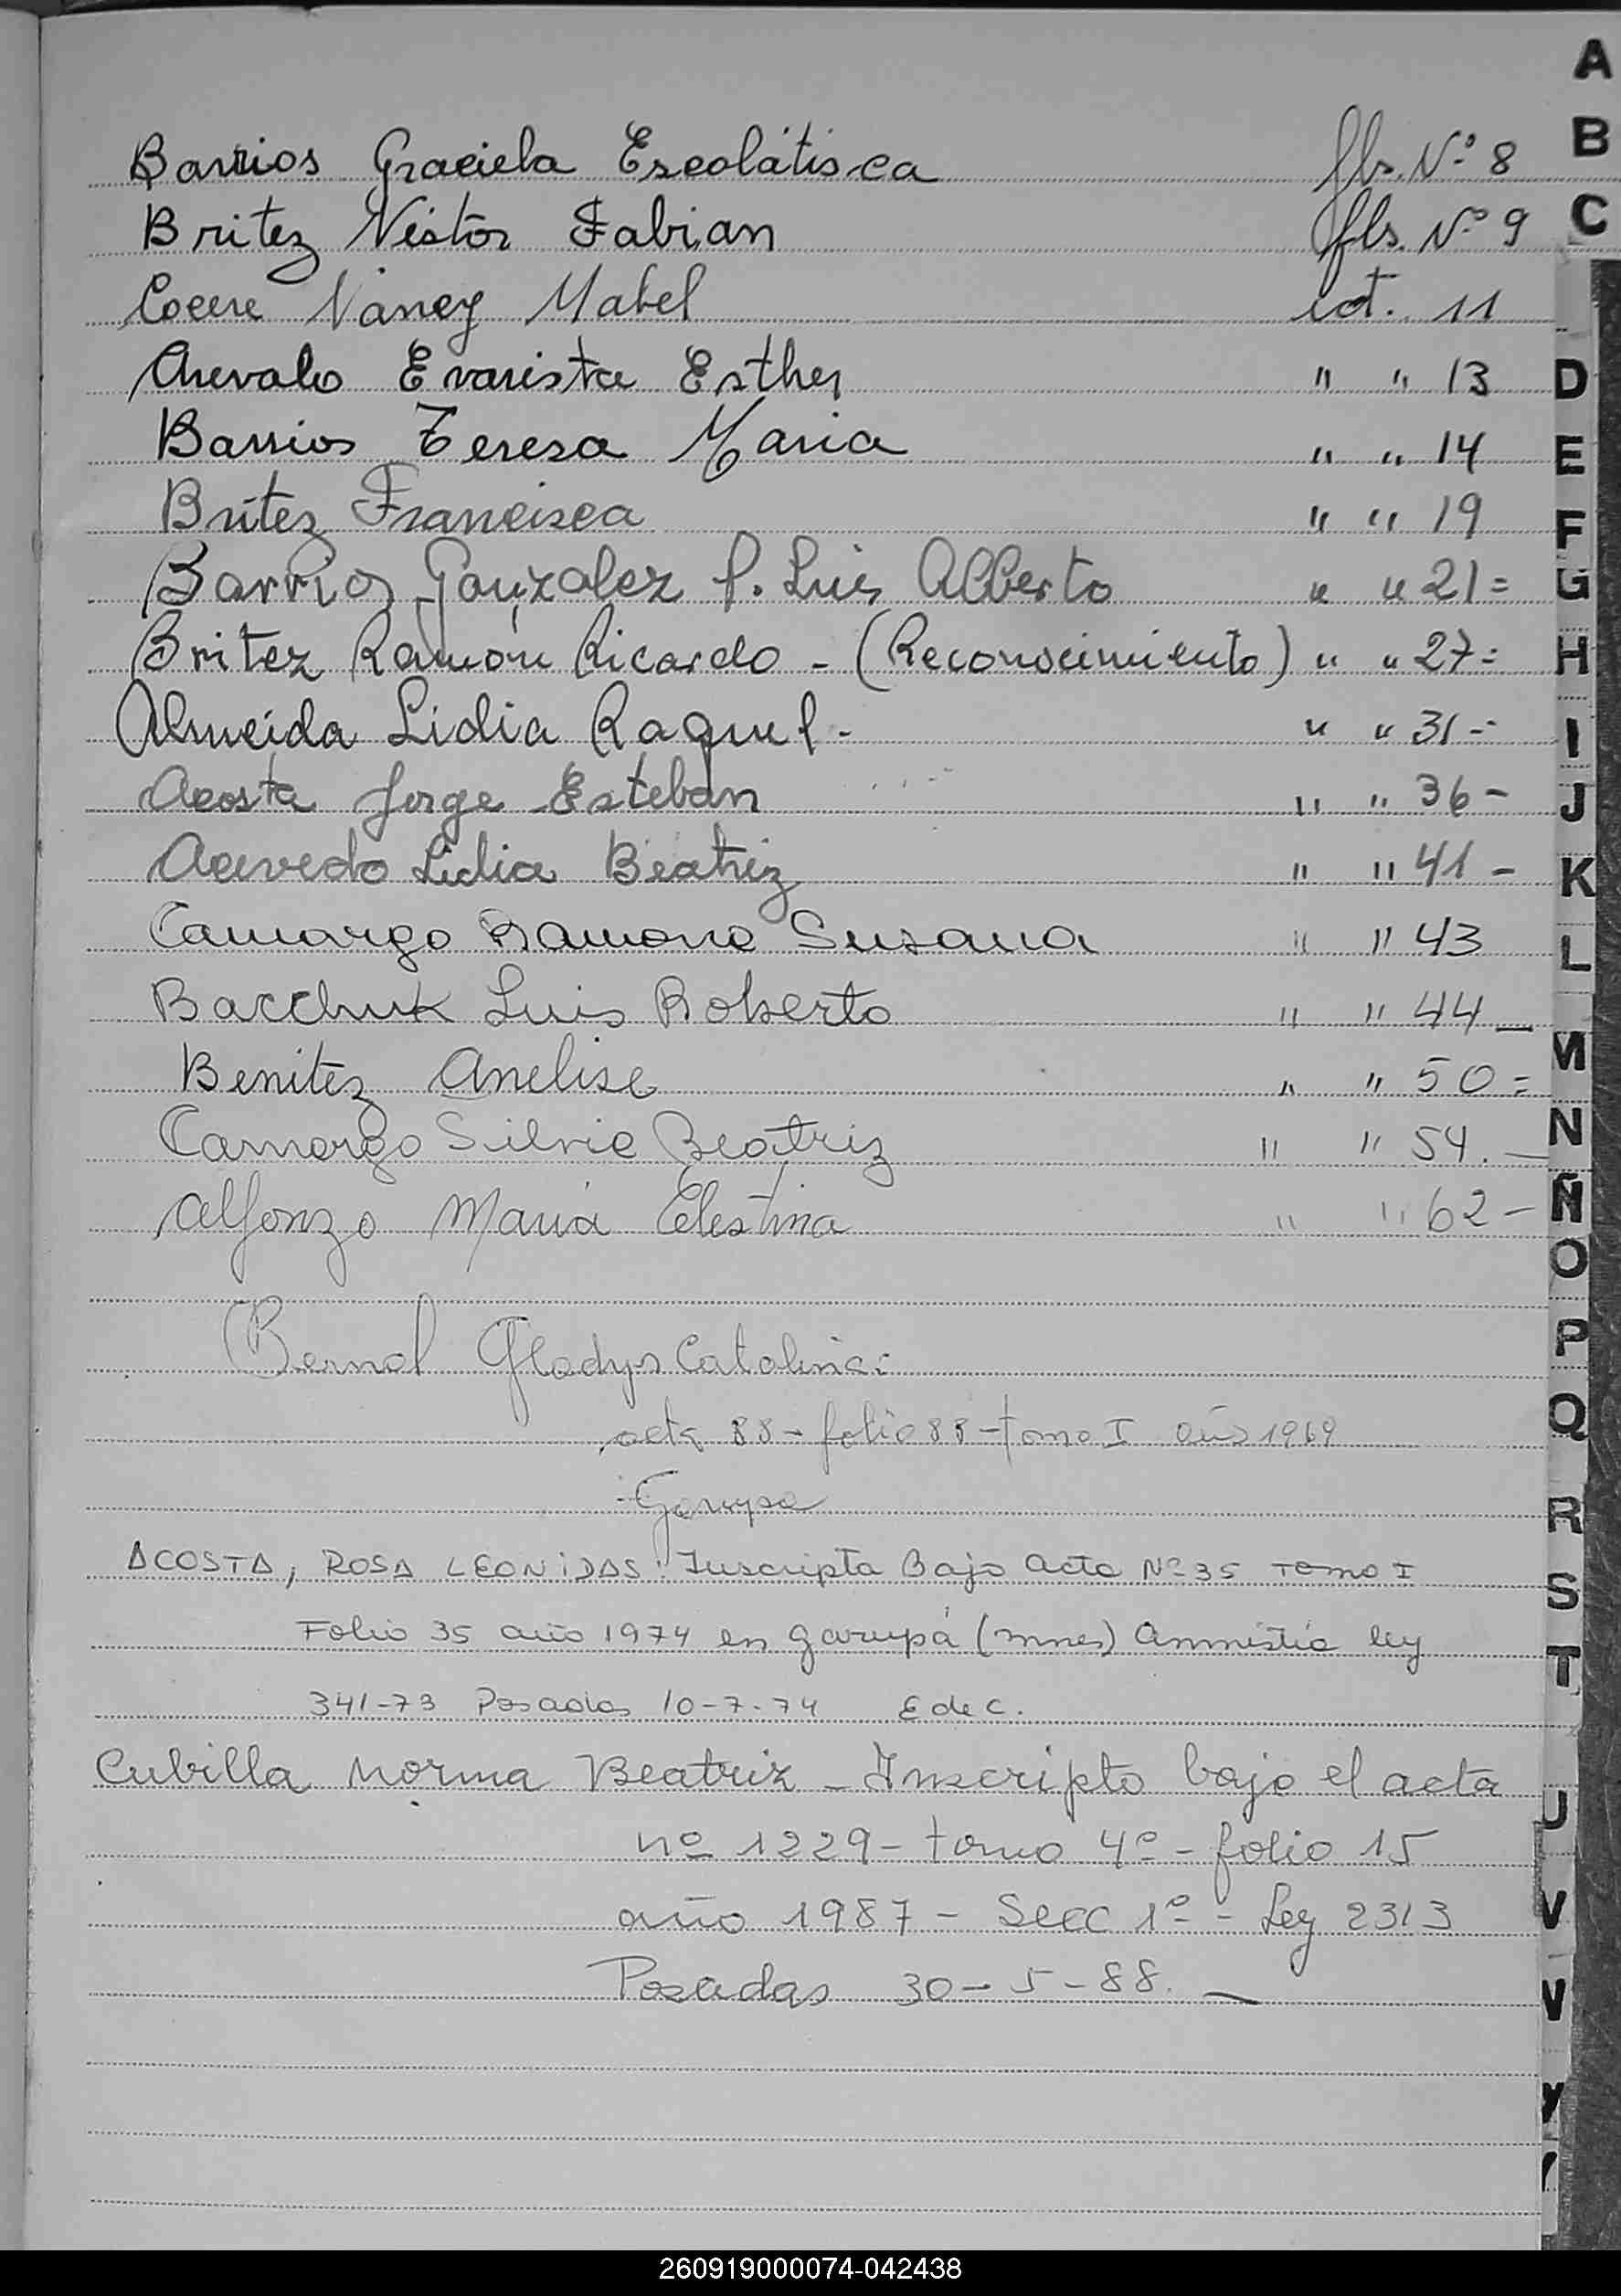 Barrios Graciela Escolátisca fls. Nº 8
Britez Néstor Fabian fls. Nº 9
Nancy Mabel 11
Arevalo Evarista Esther " " 13
Barrios Teresa Maria " " 14
Britez Francisca " " 19
Barrios Gonzalez P. Luis Alberto " " 21=
Britez Ramón Ricardo - (Reconocimiento) " " 27=
Almeida Lidia Raquel - " " 31=
Acosta Jorge Esteban " " 36-
Acevedo Lidia Beatriz " " 41-
Camargo Ramona Susana " " 43
Bacchuk Luis Roberto " " 44-
Benitez Anelise " " 50=
Camargo Silvia Beatriz " " 54.-
Alfonzo Maria Celestina " " 62-
Bernal Gladys Catalina:
acta 88- folio 88- tomo I año 1969
Garupa
ACOSTA, ROSA LEONIDAS: Inscripta Bajo acta Nº 35 Tomo I
Folio 35 año 1974 en Garupá (mnes) Amnistia ley
341-73 Posadas 10-7-74 E de C.
Cubilla Norma Beatriz - Inscripto bajo el acta
nº 1229- tomo 4º- folio 15
año 1987- Secc 1º- Ley 2313
Posadas 30-5-88.-
A
B
C
D
E
F
G
H
I
J
K
L
M
N
Ñ
O
P
Q
R
S
T
U
V
260919000074-042438